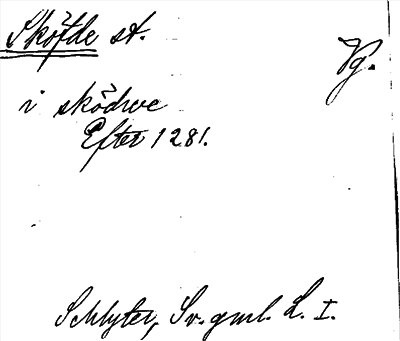 Skövde st.
Vg.
i sködwe
Efter 1281.
Schlyter, Sv. gml. L. I.